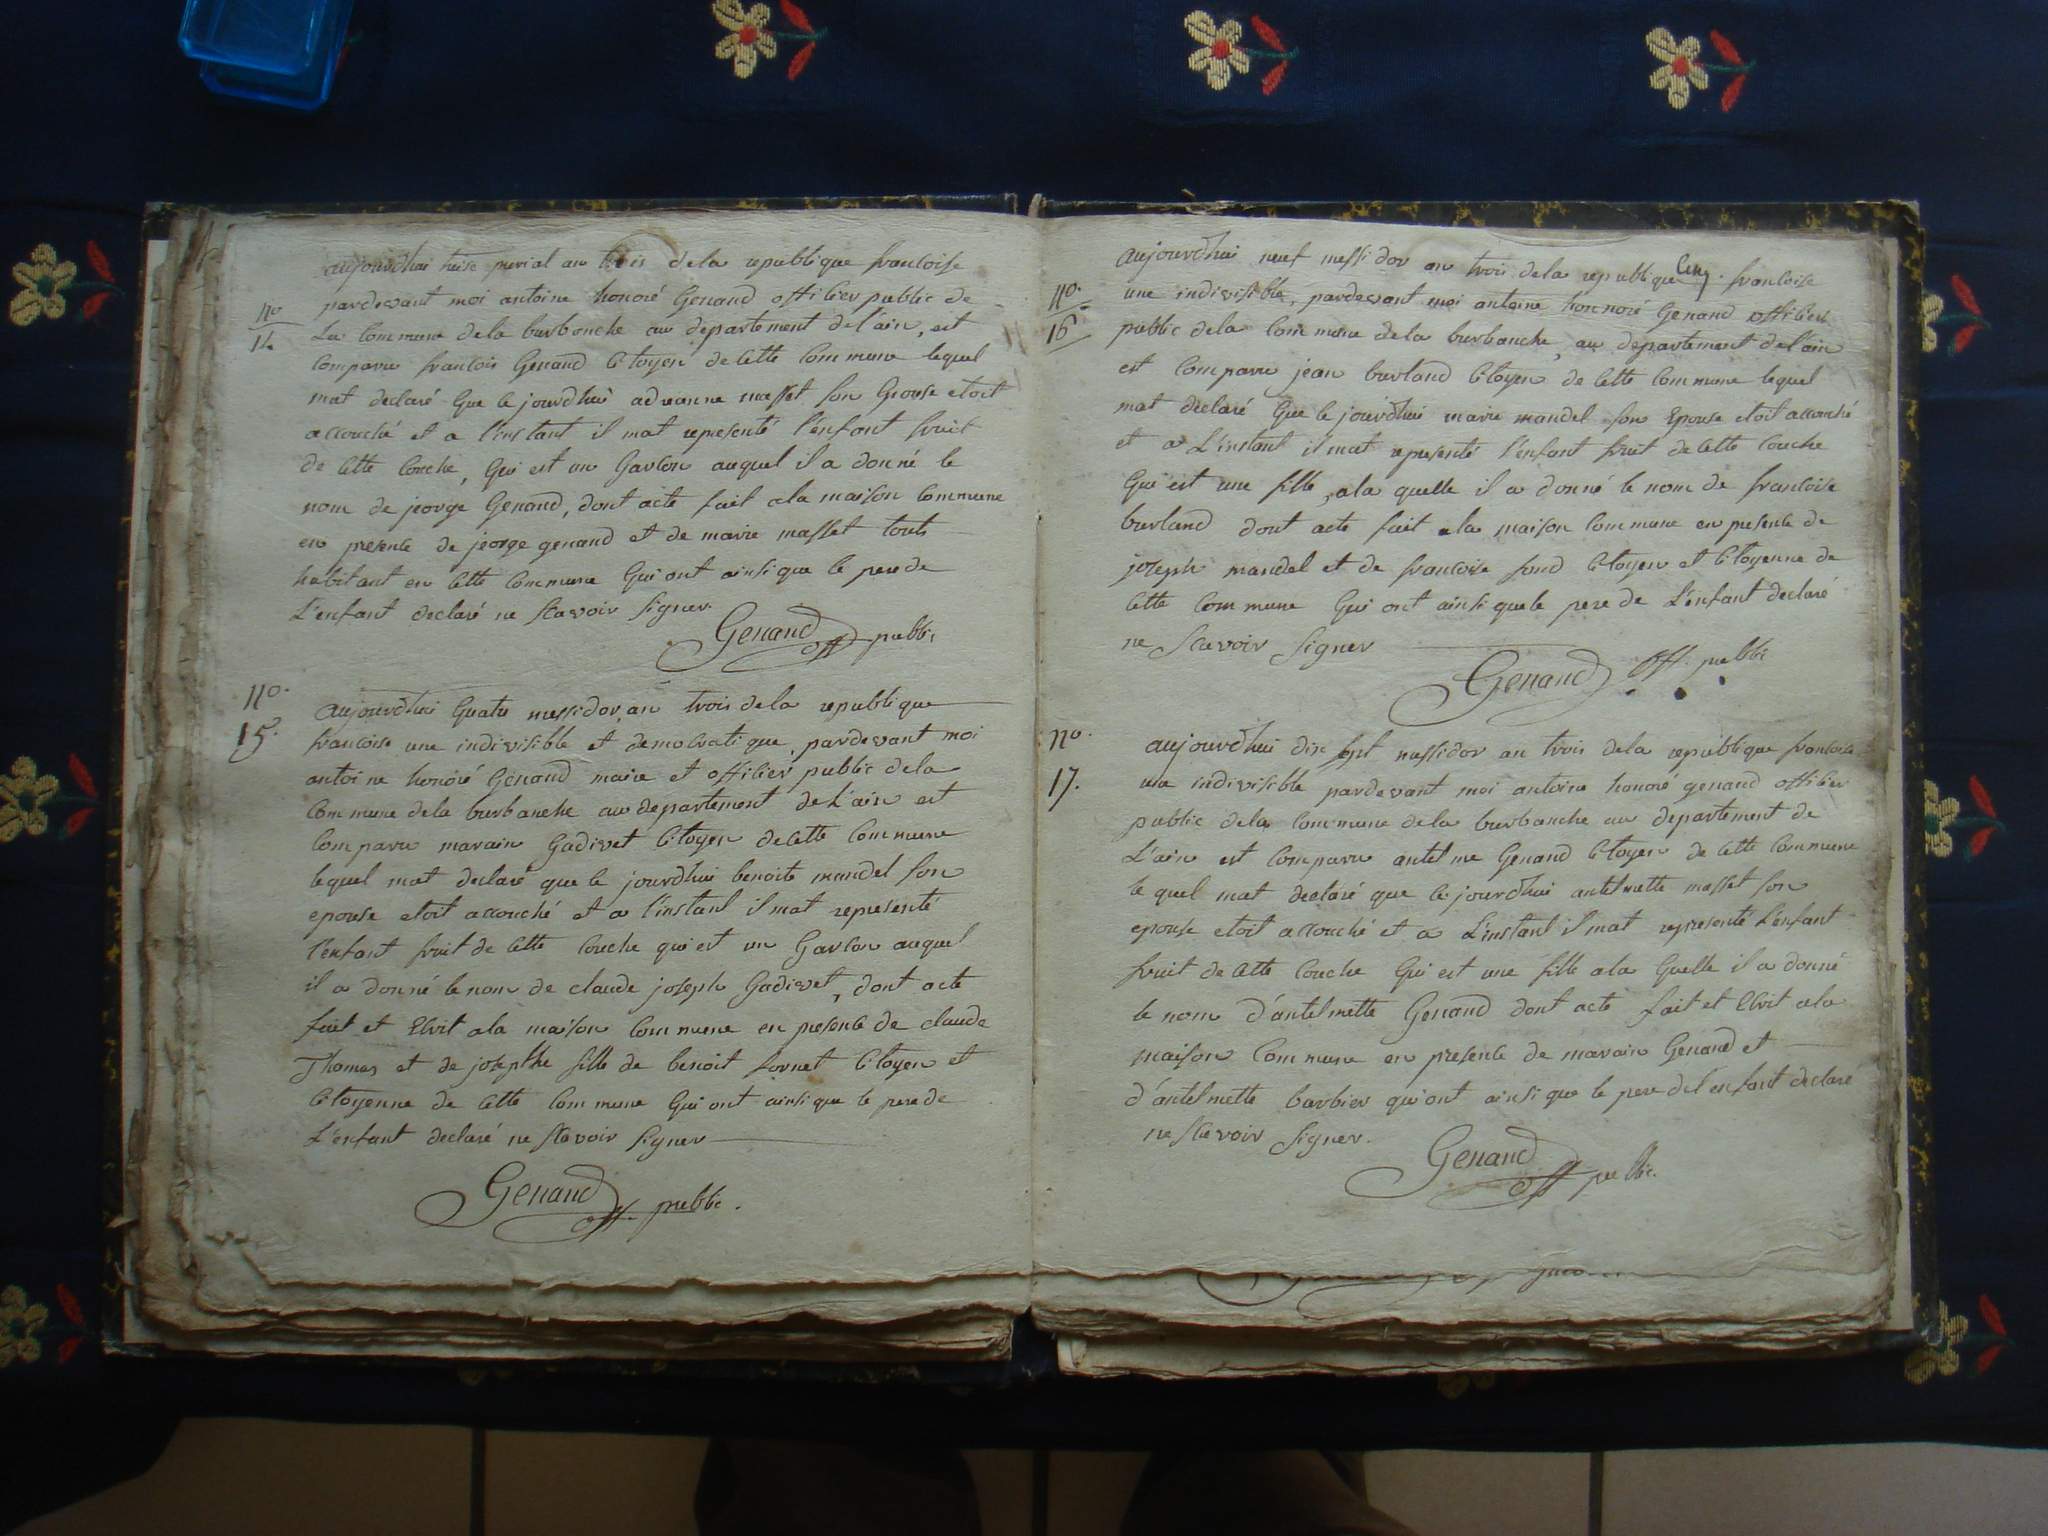 no
14
aujourdhui treise prerial an trois dela republique francoise
pardevant moi antoine honoré Genand officier public de
La commune dela burbanche au departement del'ain, est
comparu francois Genand Citoyen de Cette Commune lequel
mat declaré Que le jourdhui adrianne masset son Epouse etoit
accouché et a l'instant il mat representé l'enfant fruit
de Cette Couche, Qui est un Garcon auquel il a donné le
nom de jeorge Genand, dont acte fait ala maison Commune
en presence de jeorge genand et de marie masset touts
habitant en Cette Commune Qui ont ainsi que le pere de
L'enfant declaré ne scavoir signer.
Genand off public
no.
15.
aujourdhui Quatre messidor, an trois dela republique
francoise une indivisible et democratique, pardevant moi
antoine honoré Genand maire et officier public dela
Commune dela burbanche au departement de L'ain est
Comparu marain Gadivet Citoyen de Cette Commune
lequel mat declaré que le jourdhui benoite mandel son
epouse etoit accouché et a l'instant il mat representé
l'enfant fruit de Cette Couche qui est un Garcon auquel
il a donné le nom de claude joseph Gadivet, dont acte
fait et Ecrit ala maison Commune en presence de claude
Thomas et de josepthe fille de benoit fornet Citoyen et
Citoyenne de Cette Commune Qui ont ainsi que le pere de
L'enfant declaré ne scavoir signer
Genand off. public.
no.
16
aujourdhui neuf messidor an trois dela republique francoise
une indivisible, pardevant moi antoine honnoré Genand officier
public dela Commune dela burbanche, au departement del'ain
est Comparu jean burland Citoyen de Cette Commune lequel
mat declaré Que le jourdhui marie mandel son Epouse etoit accouché
et a L'instant il mat representé l'enfant fruit de Cette Couche
Qui est une fille, ala quelle il a donné le nom de francoise
burland dont acte fait ala maison Commune en presence de
joseph mandel et de francoise fond Citoyen et Citoyenne de
Cette Commune Qui ont ainsi que le pere de L'enfant declaré
ne scavoir signer
Genand off. public
no.
17.
aujourdhui dix sept messidor an trois dela republique francoise
une indivisible pardevant moi antoine honoré genand officier
public dela Commune dela burbanche au departement de
L'ain est Comparu antelme Genand Citoyen de Cette Commune
le quel mat declaré que le jourdhui antelmette masset son
epouse etoit accouché et a L'instant il mat representé L'enfant
fruit de Cette Couche Qui est une fille ala Quelle il a donné
le nom d'antelmette Genand dont acte fait et Ecrit ala
maison Commune en presence de marain Genand et
d'antelmette barbier qui ont ainsi que le pere de l'enfant declaré
ne scavoir signer.
Genand off public.